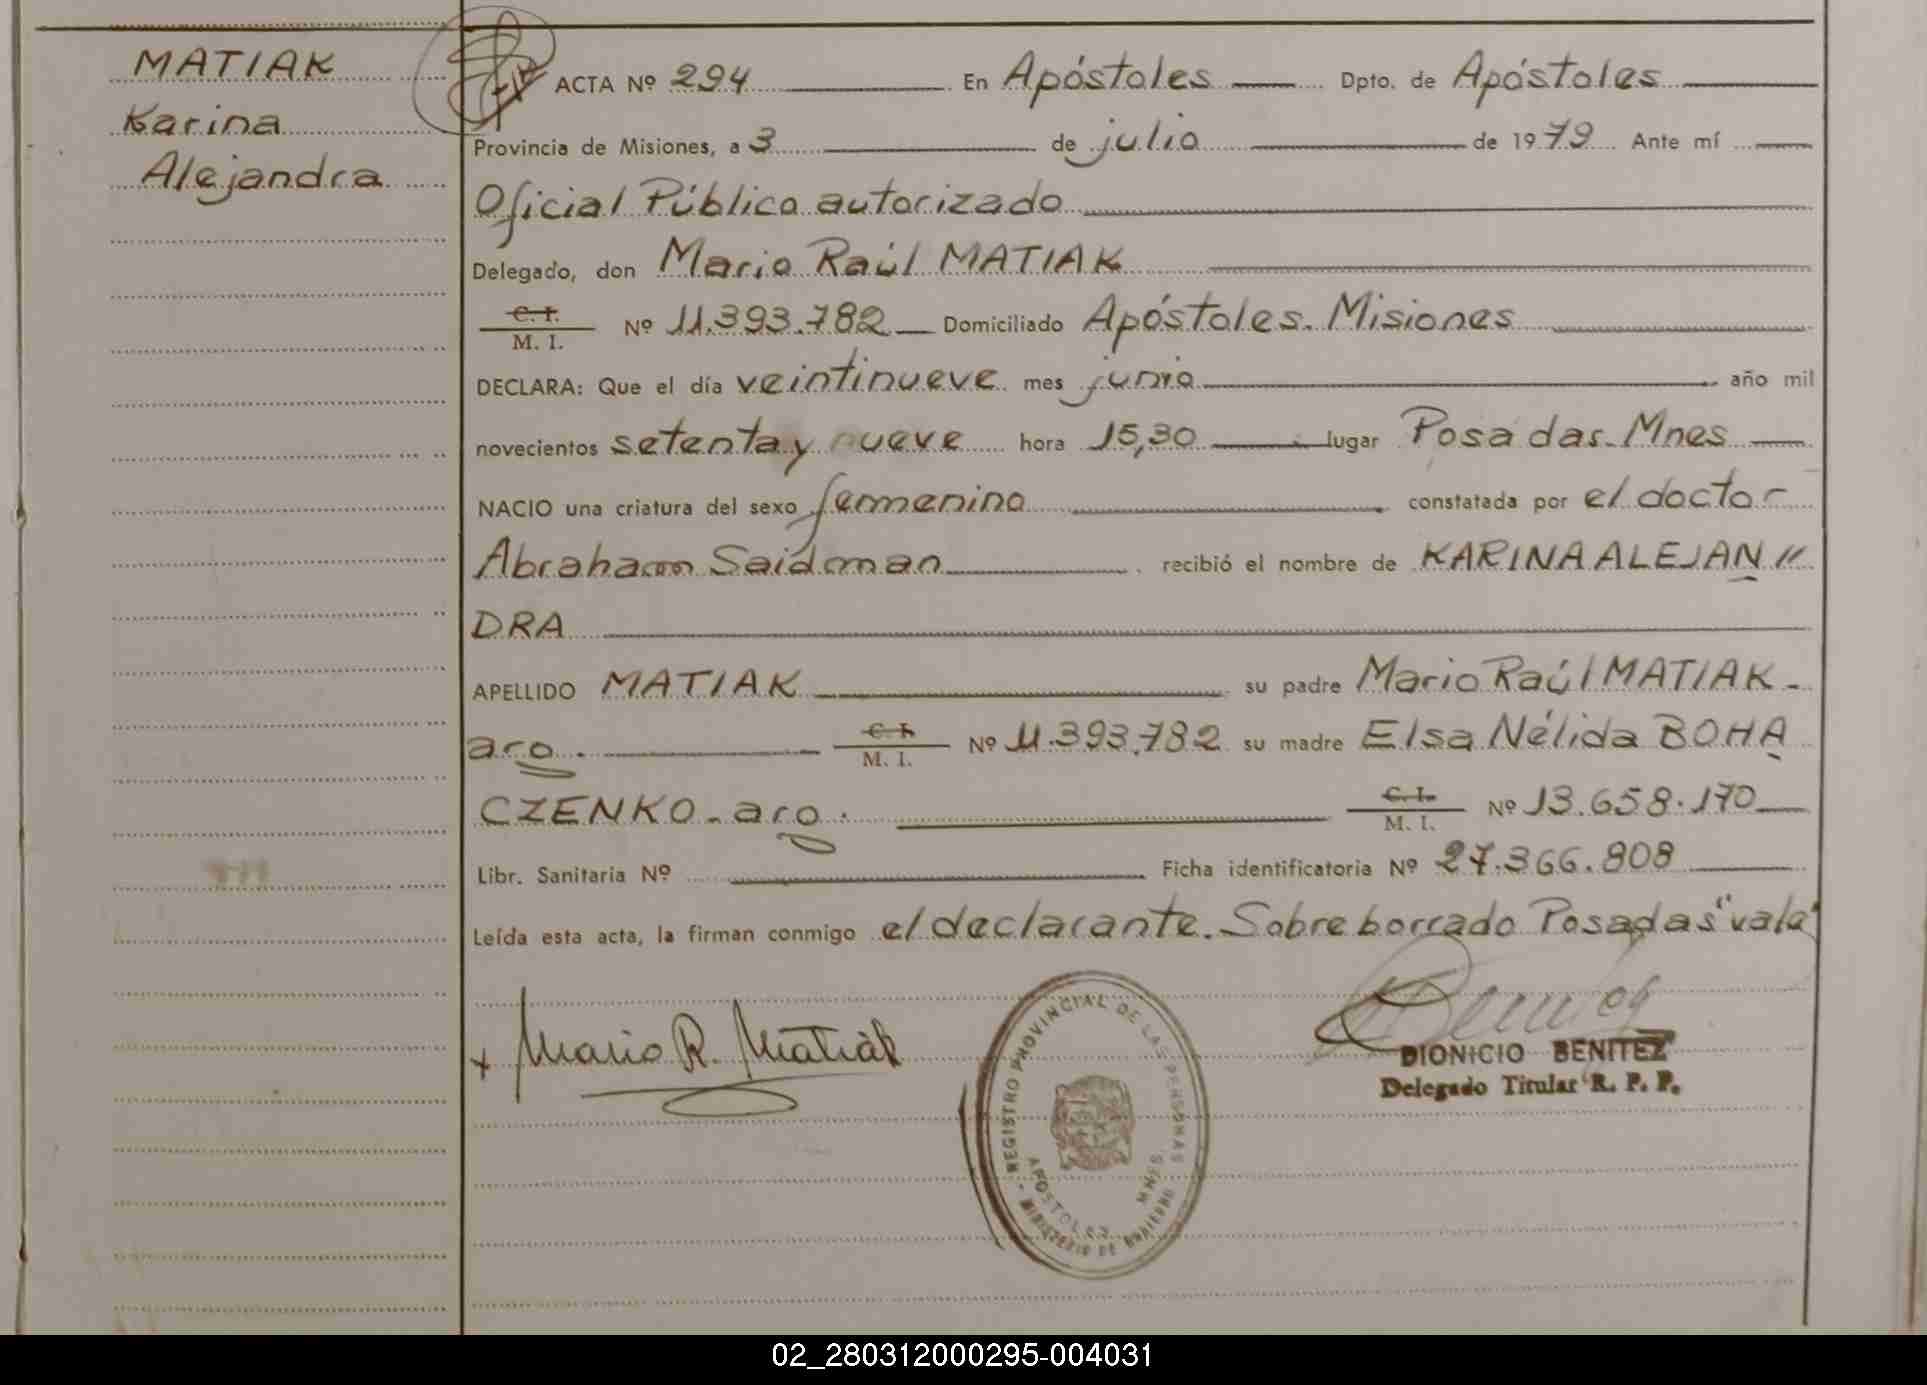 MATIAK
Karina
Alejandra
ACTA Nº 294 En Apóstoles Dpto. de Apóstoles
Provincia de Misiones, a 3 de julio de 1979 Ante mí
Oficial Público autorizado
Delegado, don Mario Raúl MATIAK
C. I.
M. I. Nº 11.393.782 Domiciliado Apóstoles. Misiones
DECLARA: Que el día veintinueve mes junio año mil
novecientos setenta y nueve hora 15,30 lugar Posadas. Mnes
NACIO una criatura del sexo femenino constatada por el doctor
Abraham Saidman recibió el nombre de KARINA ALEJAN //
DRA
APELLIDO MATIAK su padre Mario Raúl MATIAK -
aro. C. I.
M. I. Nº 11.393.782 su madre Elsa Nélida BOHA
CZENKO - aro. C. I.
M. I. Nº 13.658.170
Libr. Sanitaria Nº Ficha identificatoria Nº 27.366.808
Leída esta acta, la firman conmigo el declarante. Sobreborrado Posadas "vale"
x Mario R. Matiak
REGISTRO PROVINCIAL DE LAS PERSONAS
APOSTOLES MNES.
MINISTERIO DE GOBIERNO
DIONICIO BENITEZ
Delegado Titular R. P. P.
02_280312000295-004031